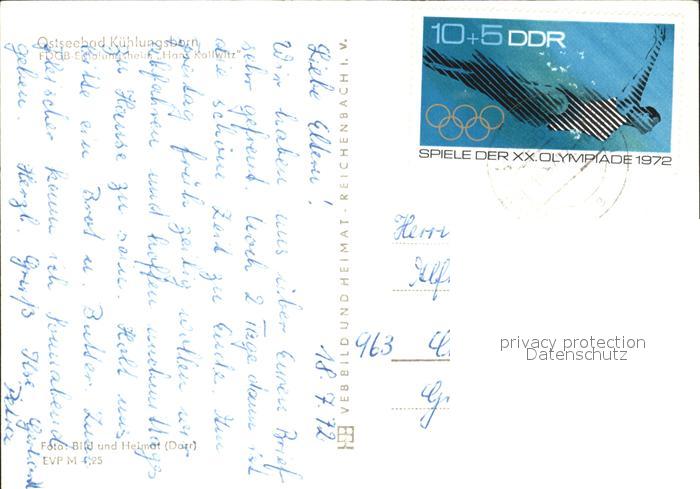 Ostseebad Kühlungsborn
FDGB-Erholungsheim „Hans Kollwitz"
10+5 DDR
SPIELE DER XX. OLYMPIADE 1972
18.7.72
Liebe Eltern!
Wir haben uns über Euren Brief
sehr gefreut. Noch 2 Tage dann ist
die schöne Zeit zu Ende. Am
Freitag früh zeitig wollen wir
abfahren und hoffen nachmittags
zu Hause zu sein. Holt uns
bitte ein Brot u. Butter. Zum
Fleischer kann ich Sonnabend
gehen. Herzl. Grüße Ihre
Petra
VEB BILD UND HEIMAT · REICHENBACH I. V.
Herrn
Alf
963
privacy protection
Datenschutz
Foto: Bild und Heimat (Darr)
EVP M 0,25